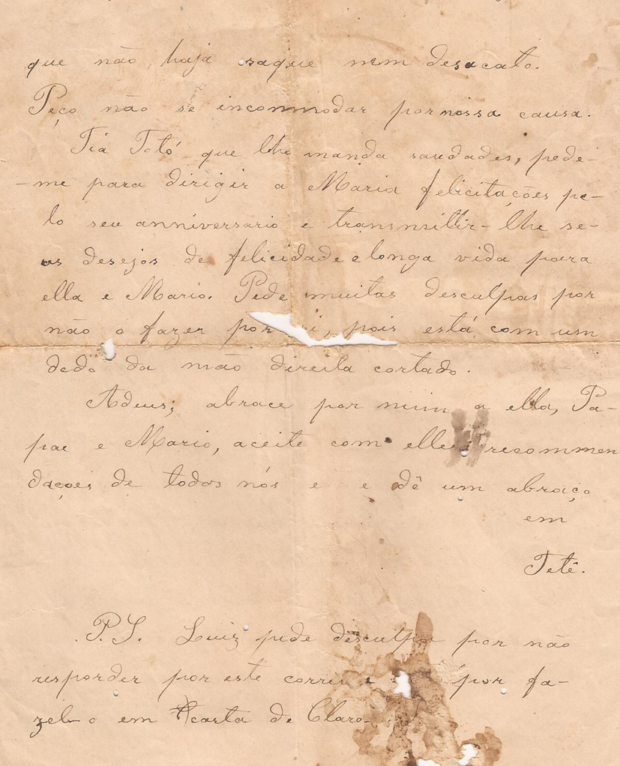 que não haja saque nem desacato.
Peço não se incommodar por nossa causa.
Tia Totó que lhe manda saudades, pede-
-me para dirigir a Maria felicitações pe-
lo seu anniversario e transmittir-lhe se-
us desejos de felicidade e longa vida para
ella e Mario. Pede muitas desculpas por
não o fazer por si, pois está com um
dedo da mão direita cortado.
Adeus; abrace por mim a ella, Pa-
pae e Mario, aceite com elles recommen
dações de todos nós e e dê um abraço
em
Teté.
P.S. Luiz pede desculpa por não
responder por este por fa-
zel-o em carta de Claro